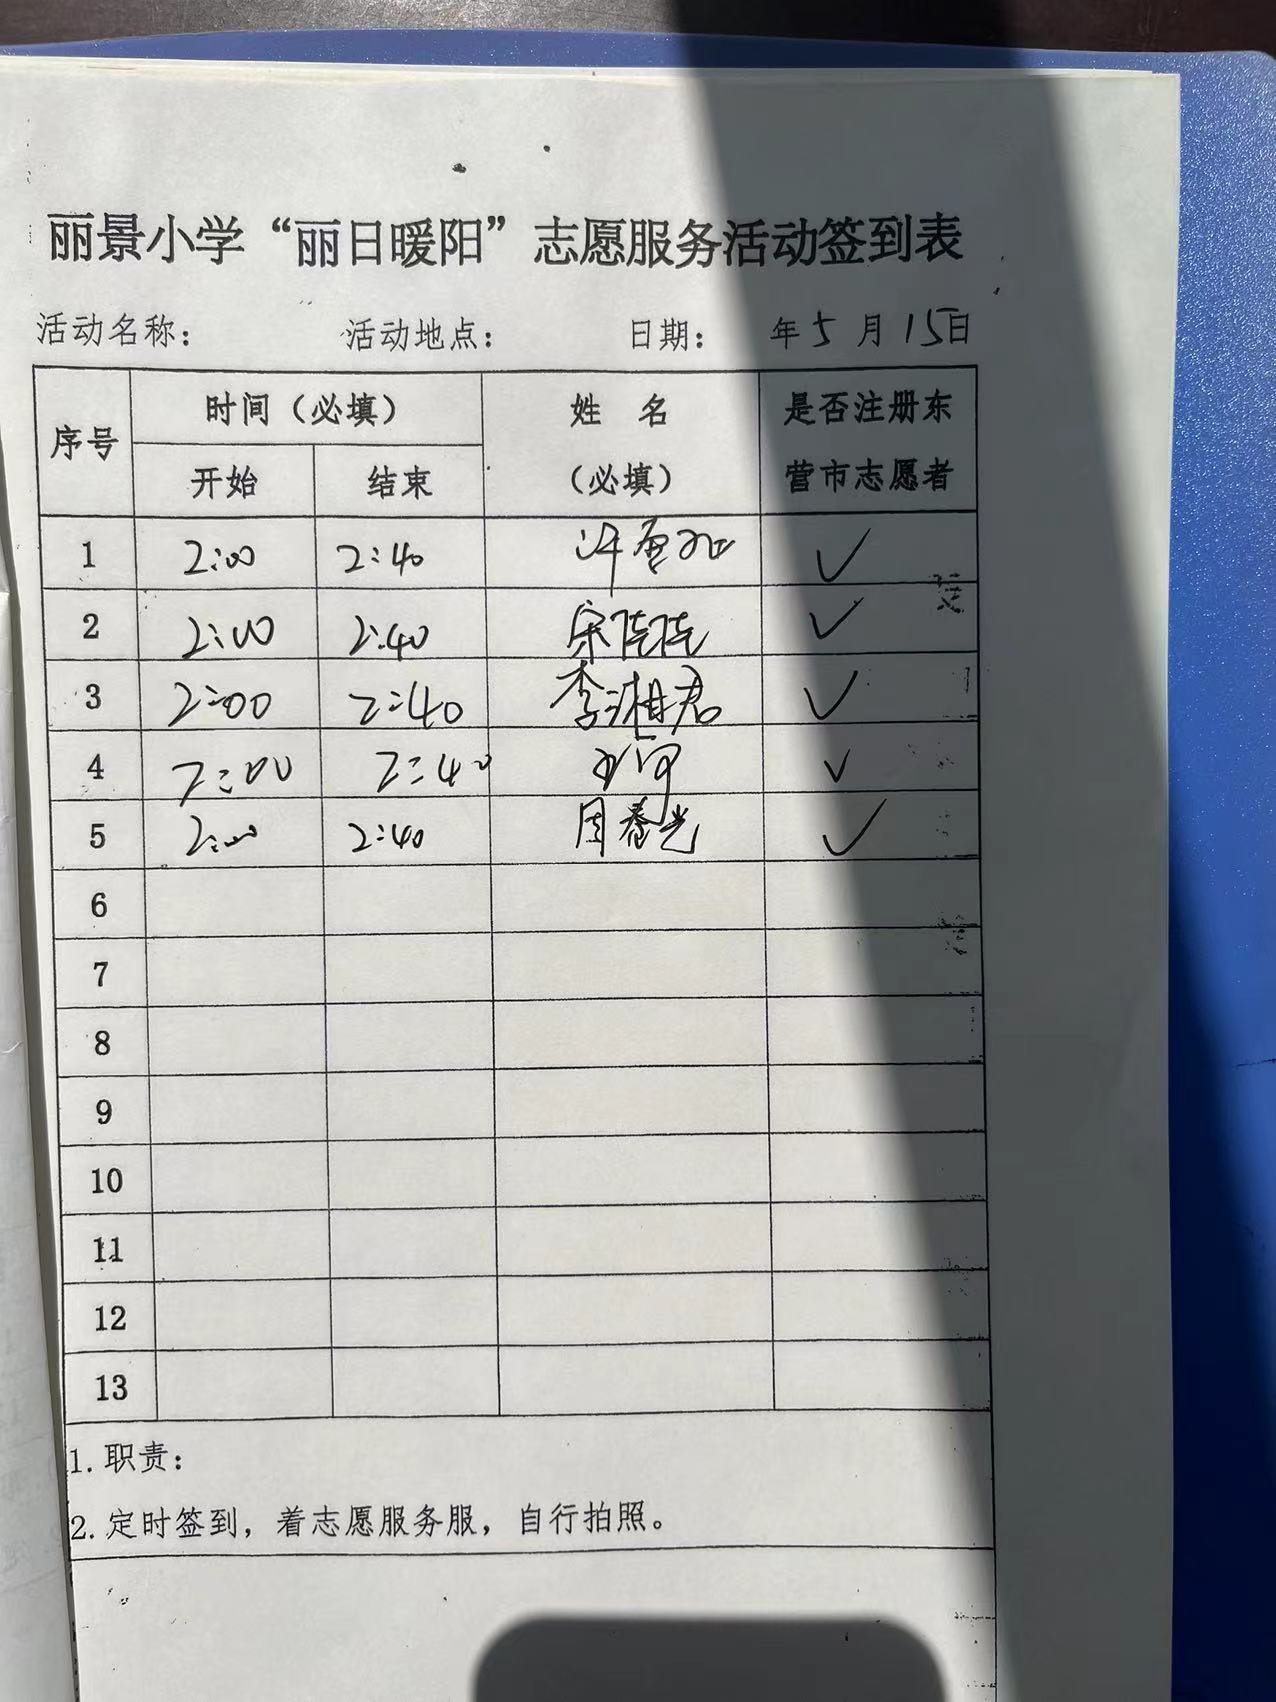 丽景小学“丽日暖阳”志愿服务活动签到表
活动名称： 活动地点： 日期： 年5月15日
序号 时间（必填） 姓 名（必填） 是否注册东营市志愿者
开始 结束
1 2:00 2:40 ✓
2 2:00 2:40 宋陆陆 ✓
3 2:00 2:40 李湘君 ✓
4 2:00 2:40 ✓
5 2:00 2:40 周春光 ✓
6
7
8
9
10
11
12
13
1.职责：
2.定时签到，着志愿服务服，自行拍照。